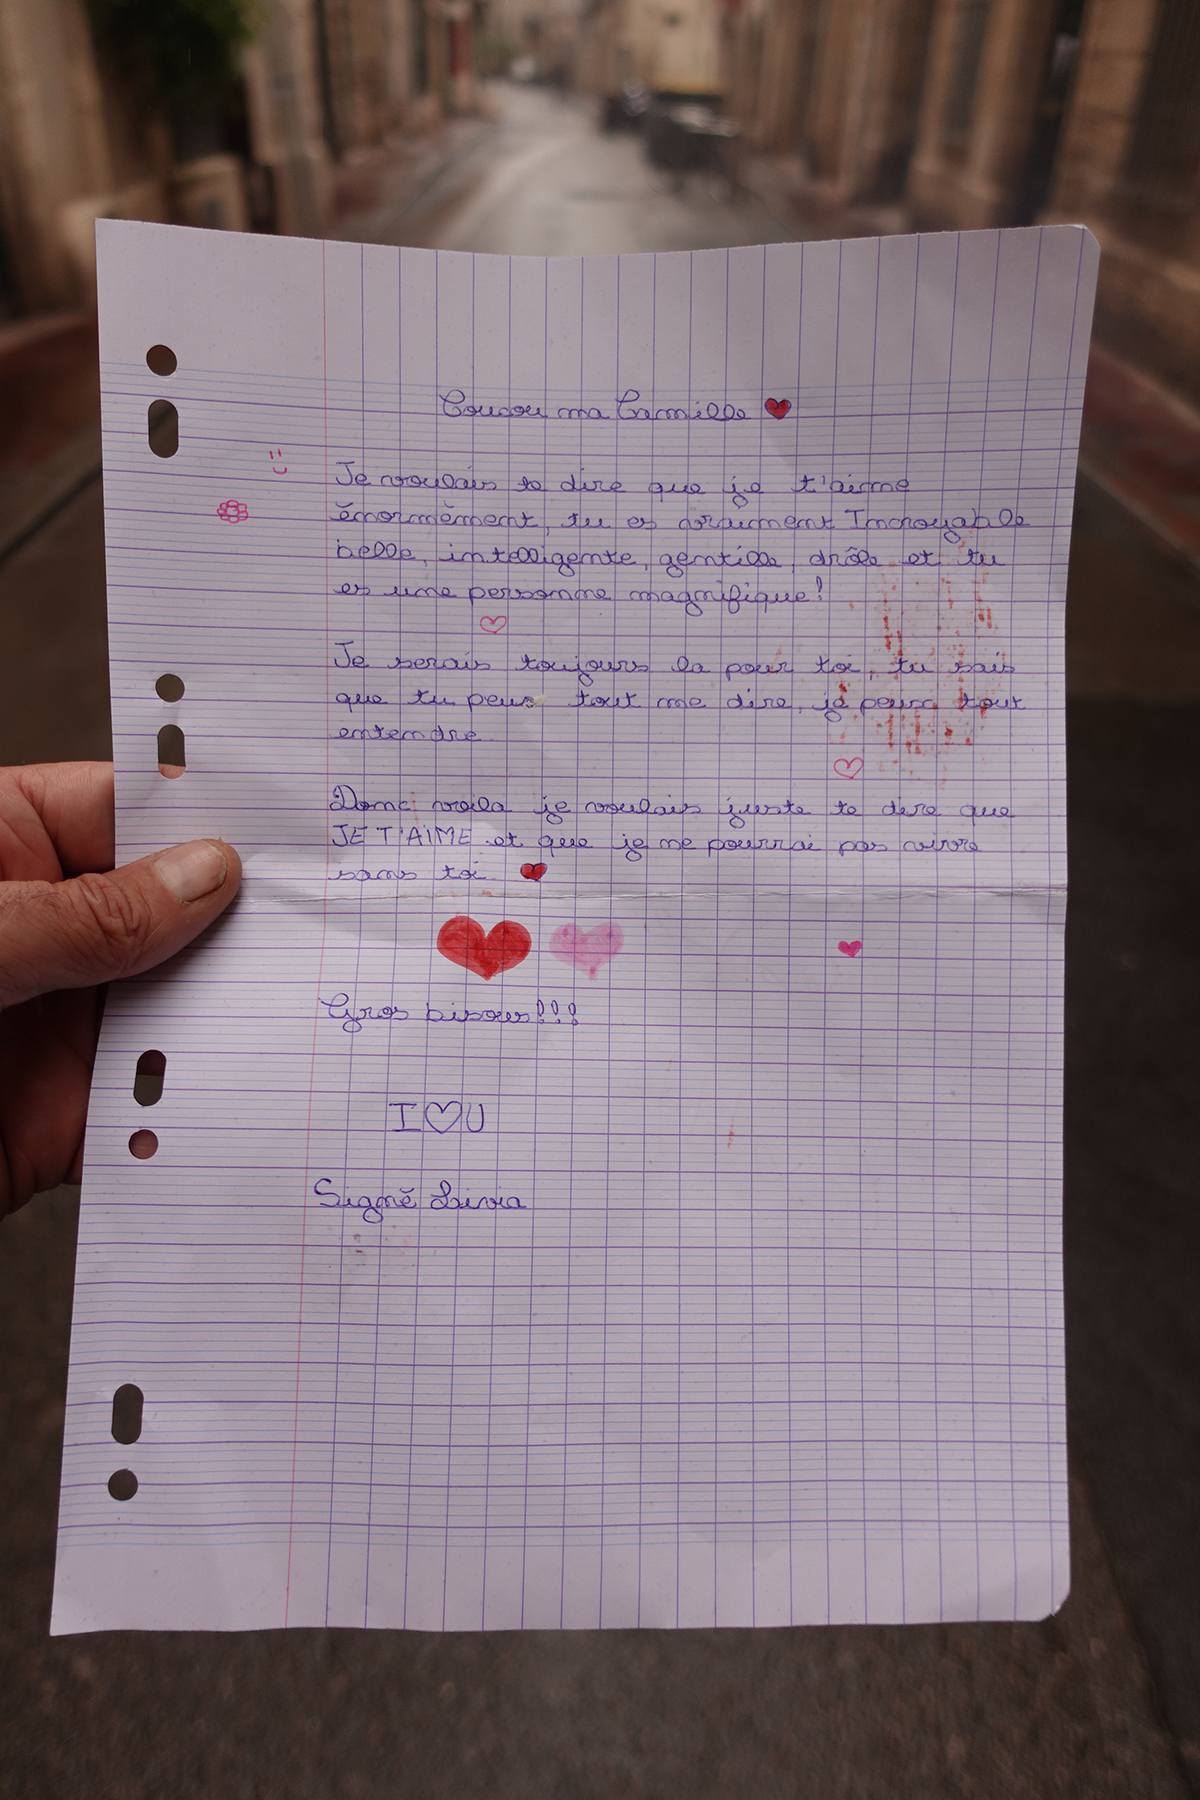 Coucou ma Camille
Je voulais te dire que je t'aime
énormément, tu es vraiment Incroyable
belle, intelligente, gentille, drôle et tu
es une personne magnifique!
Je serais toujours la pour toi, tu sais
que tu peux tout me dire, je peux tout
entendre
Donc voila je voulais juste te dire que
JE T'AIME et que je ne pourrai pas vivre
sans toi
Gros bisous!!!
I♡U
Signé Livia